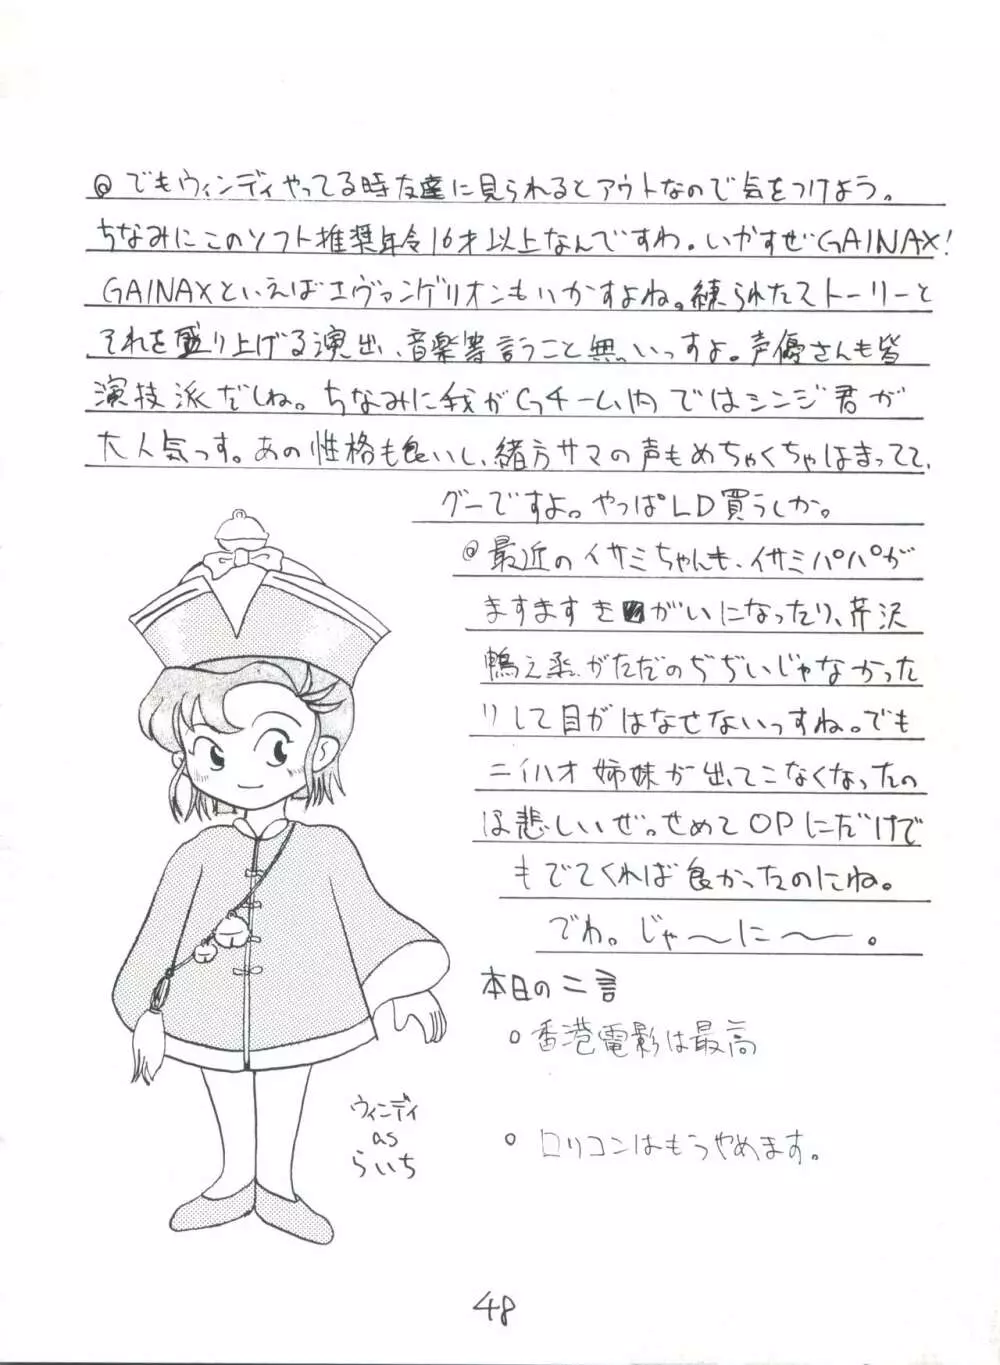 @ でもウィンディやってる時友達に見られるとアウトなので気をつけよう。
ちなみにこのソフト推奨年令16才以上なんですわ。いかすぜGAINAX!
GAINAXといえばエヴァンゲリオンもいかすよね。練られたストーリーと
それを盛り上げる演出、音楽等言うこと無いっすよ。声優さんも皆
演技派だしね。ちなみに我がGチーム内ではシンジ君が
大人気っす。あの性格も良いし、緒方サマの声もめちゃくちゃはまってて、
グーですよ。やっぱLD買うしか。
@ 最近のイサミちゃんも、イサミパパが
ますますきがいになったり、芹沢
鴨之丞がただのぢぢいじゃなかった
りして目がはなせないっすね。でも
ニイハオ姉妹が出てこなくなったの
は悲しいぜ。せめてOPにだけで
もでてくれば良かったのにね。
でわ。じゃ〜に〜。
本日の二言
○ 香港電影は最高
○ ロリコンはもうやめます。
ウィンディ
as
らいち
48